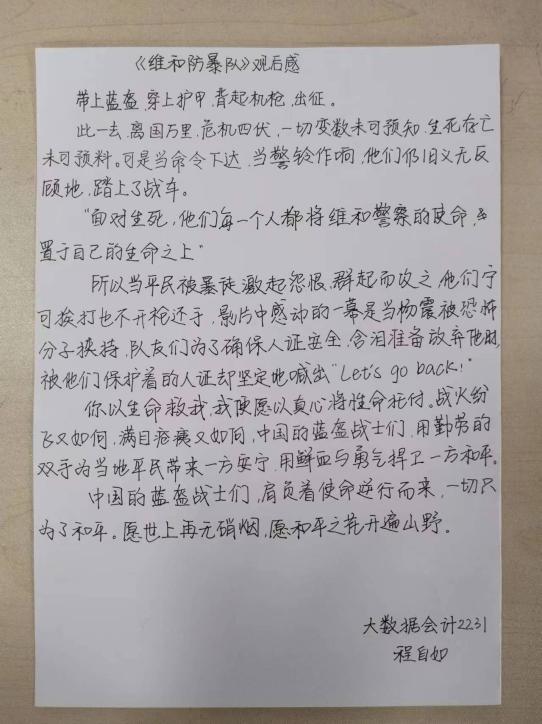 《维和防暴队》观后感
带上蓝盔,穿上护甲,背起机枪,出征。
此一去,离国万里,危机四伏,一切变数未可预知,生死存亡
未可预料。可是当命令下达,当警铃作响,他们仍旧义无反
顾地,踏上了战车。
“面对生死,他们每一个人都将维和警察的使命,
置于自己的生命之上”
所以当平民被暴徒激起怨恨,群起而攻之,他们宁
可挨打也不开枪还手,影片中感动的一幕是当杨震被恐怖
分子挟持,队友们为了确保人证安全,含泪准备放弃他时,
被他们保护着的人证却坚定地喊出“Let's go back!”
你以生命救我,我便愿以真心将性命托付。战火纷
飞又如何,满目疮痍又如何,中国的蓝盔战士们,用勤劳的
双手为当地平民带来一方安宁,用鲜血与勇气捍卫一方和平。
中国的蓝盔战士们,肩负着使命逆行而来,一切只
为了和平。愿世上再无硝烟,愿和平之花开遍山野。
大数据会计2231
程自如